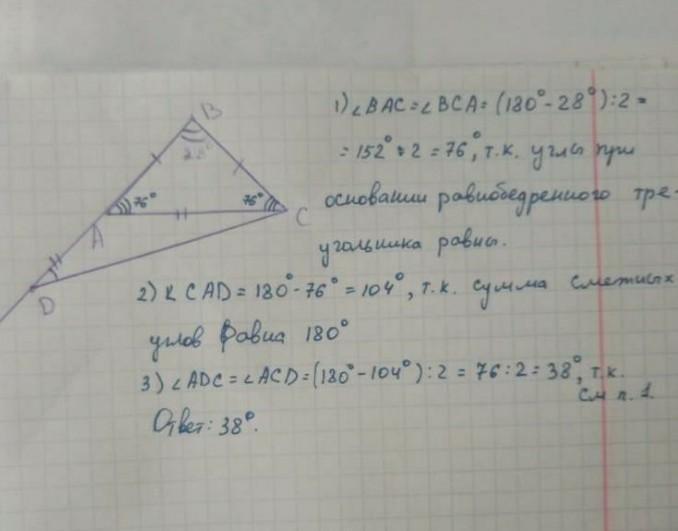 B
28°
76°
76°
A
C
D
1) ∠BAC = ∠BCA = (180° - 28°) : 2 =
= 152° : 2 = 76°, т.к. углы при
основании равнобедренного тре-
угольника равны.
2) ∠ CAD = 180° - 76° = 104°, т.к. сумма смежных
углов равна 180°
3) ∠ADC = ∠ACD = (180° - 104°) : 2 = 76 : 2 = 38°, т.к.
см п. 1.
Ответ: 38°.